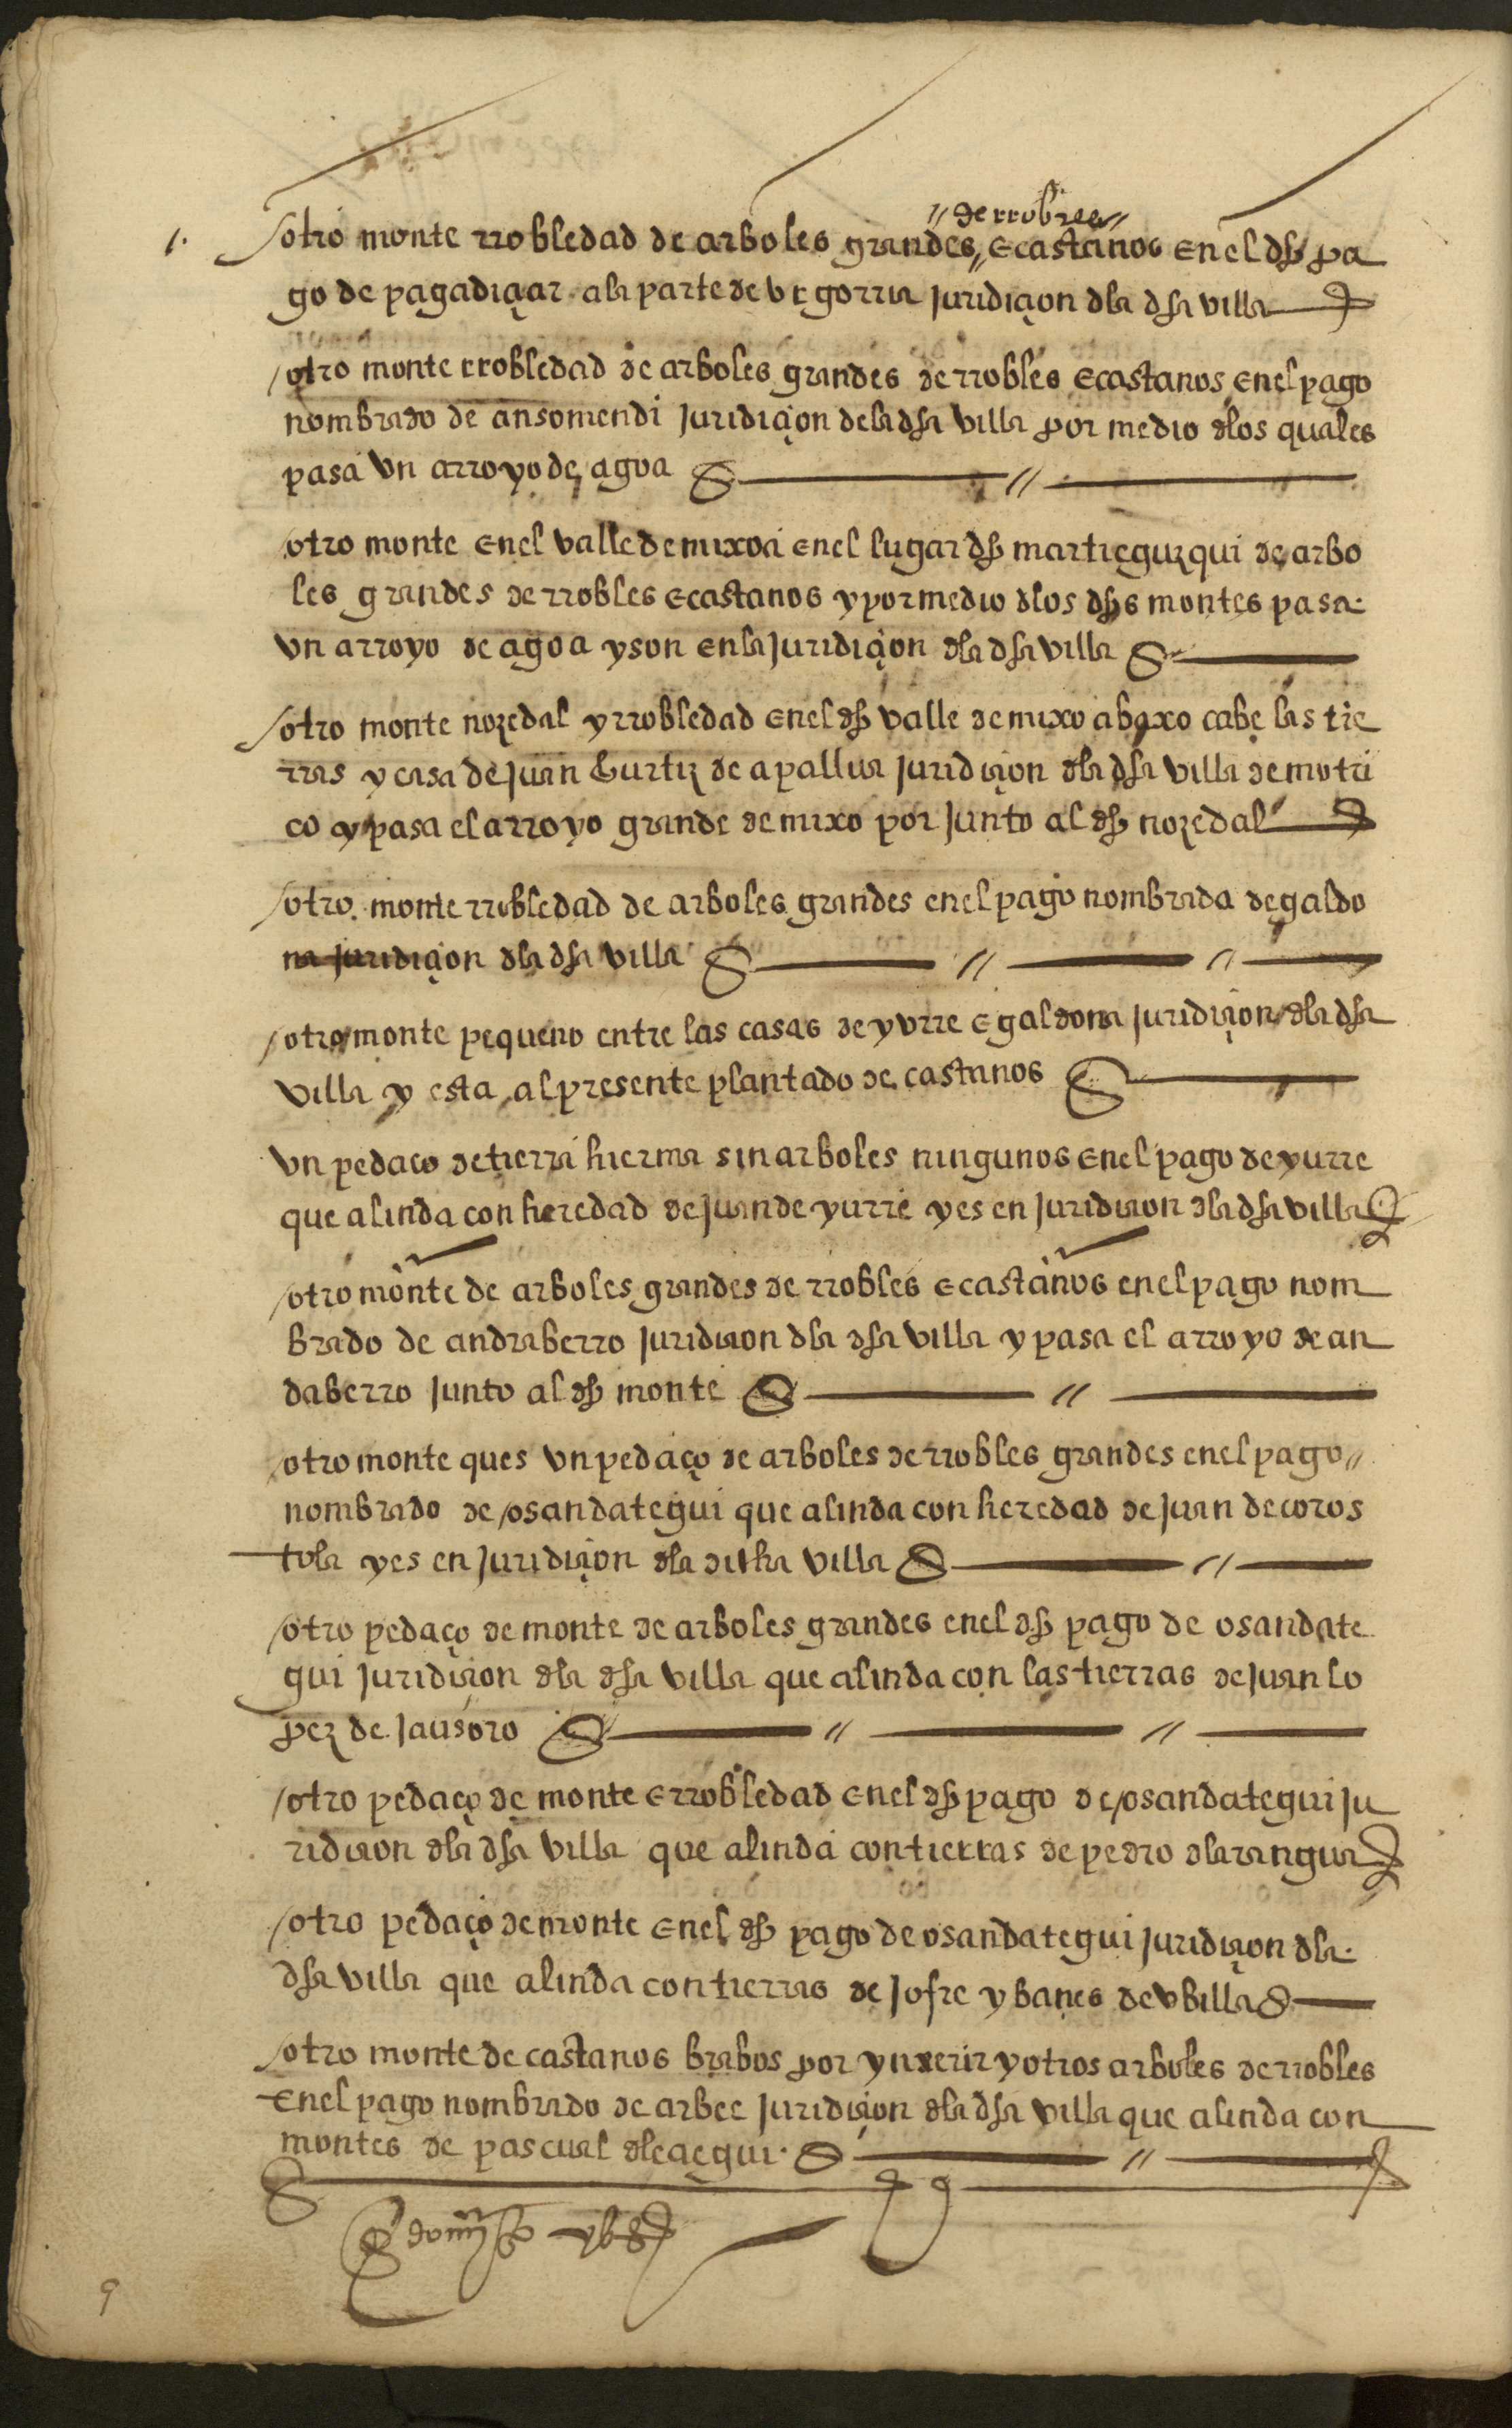 // de rrobres //
1. otro monte rrobledad de arboles grandes // e castanos en el dho pa
go de pagadiçar a la parte de vrgorria juridiçion dla dha villa
otro monte rrobledad de arboles grandes de rrobles e castanos en el pago
nombrado de ansomendi juridiçion de la dha villa por medio dlos quales
pasa vn arroyo de agoa //
otro monte en el valle de mixoa en el lugar dho martieguizqui de arbo
les grandes de rrobles e castanos y por medio dlos dhos montes pasa
vn arroyo de agoa y son en la juridiçion dla dha villa
otro monte nozedal y rrobledad en el dho valle de mixo abaxo cabe las tie
rras y casa de juan hurtiz de apallua juridiçion dla dha villa de motri
co y pasa el arroyo grande de mixo por junto al dho nozedal
otro monte rrobledad de arboles grandes en el pago nombrada de galdo
na juridiçion dla dha villa // //
otro monte pequeno entre las casas de yvrre e galdona juridiçion dla dha
villa y esta al presente plantado de castanos
vn pedaco de tierra hierma sin arboles ningunos en el pago de yurre
que alinda con heredad de juan de yurre y es en juridiçion dla dha villa
otro monte de arboles grandes de rrobles e castaños en el pago nom
brado de andraberro juridiçion dla dha villa y pasa el arroyo de an
daberro junto al dho monte //
otro monte ques vn pedaço de arboles de rrobles grandes en el pago //
nombrado de osandategui que alinda con heredad de juan de coros
tola y es en juridiçion dla dicha villa //
otro pedaço de monte de arboles grandes en el dho pago de osandate
gui juridiçion dla dha villa que alinda con las tierras de juan lo
pez de jausoro // //
otro pedaço de monte e rrobledad en el dho pago de osandategui ju
ridiçion dla dha villa que alinda con tierras de pedro dlarangua
otro pedaço de monte en el dho pago de osandategui juridiçion dla
dha villa que alinda con tierras de jofre ybanes de vbilla
otro monte de castanos brabos por ynxerir y otros arboles de rrobles
en el pago nombrado de arbee juridiçion dla dha villa que alinda con
montes de pascual dleaegui //
9